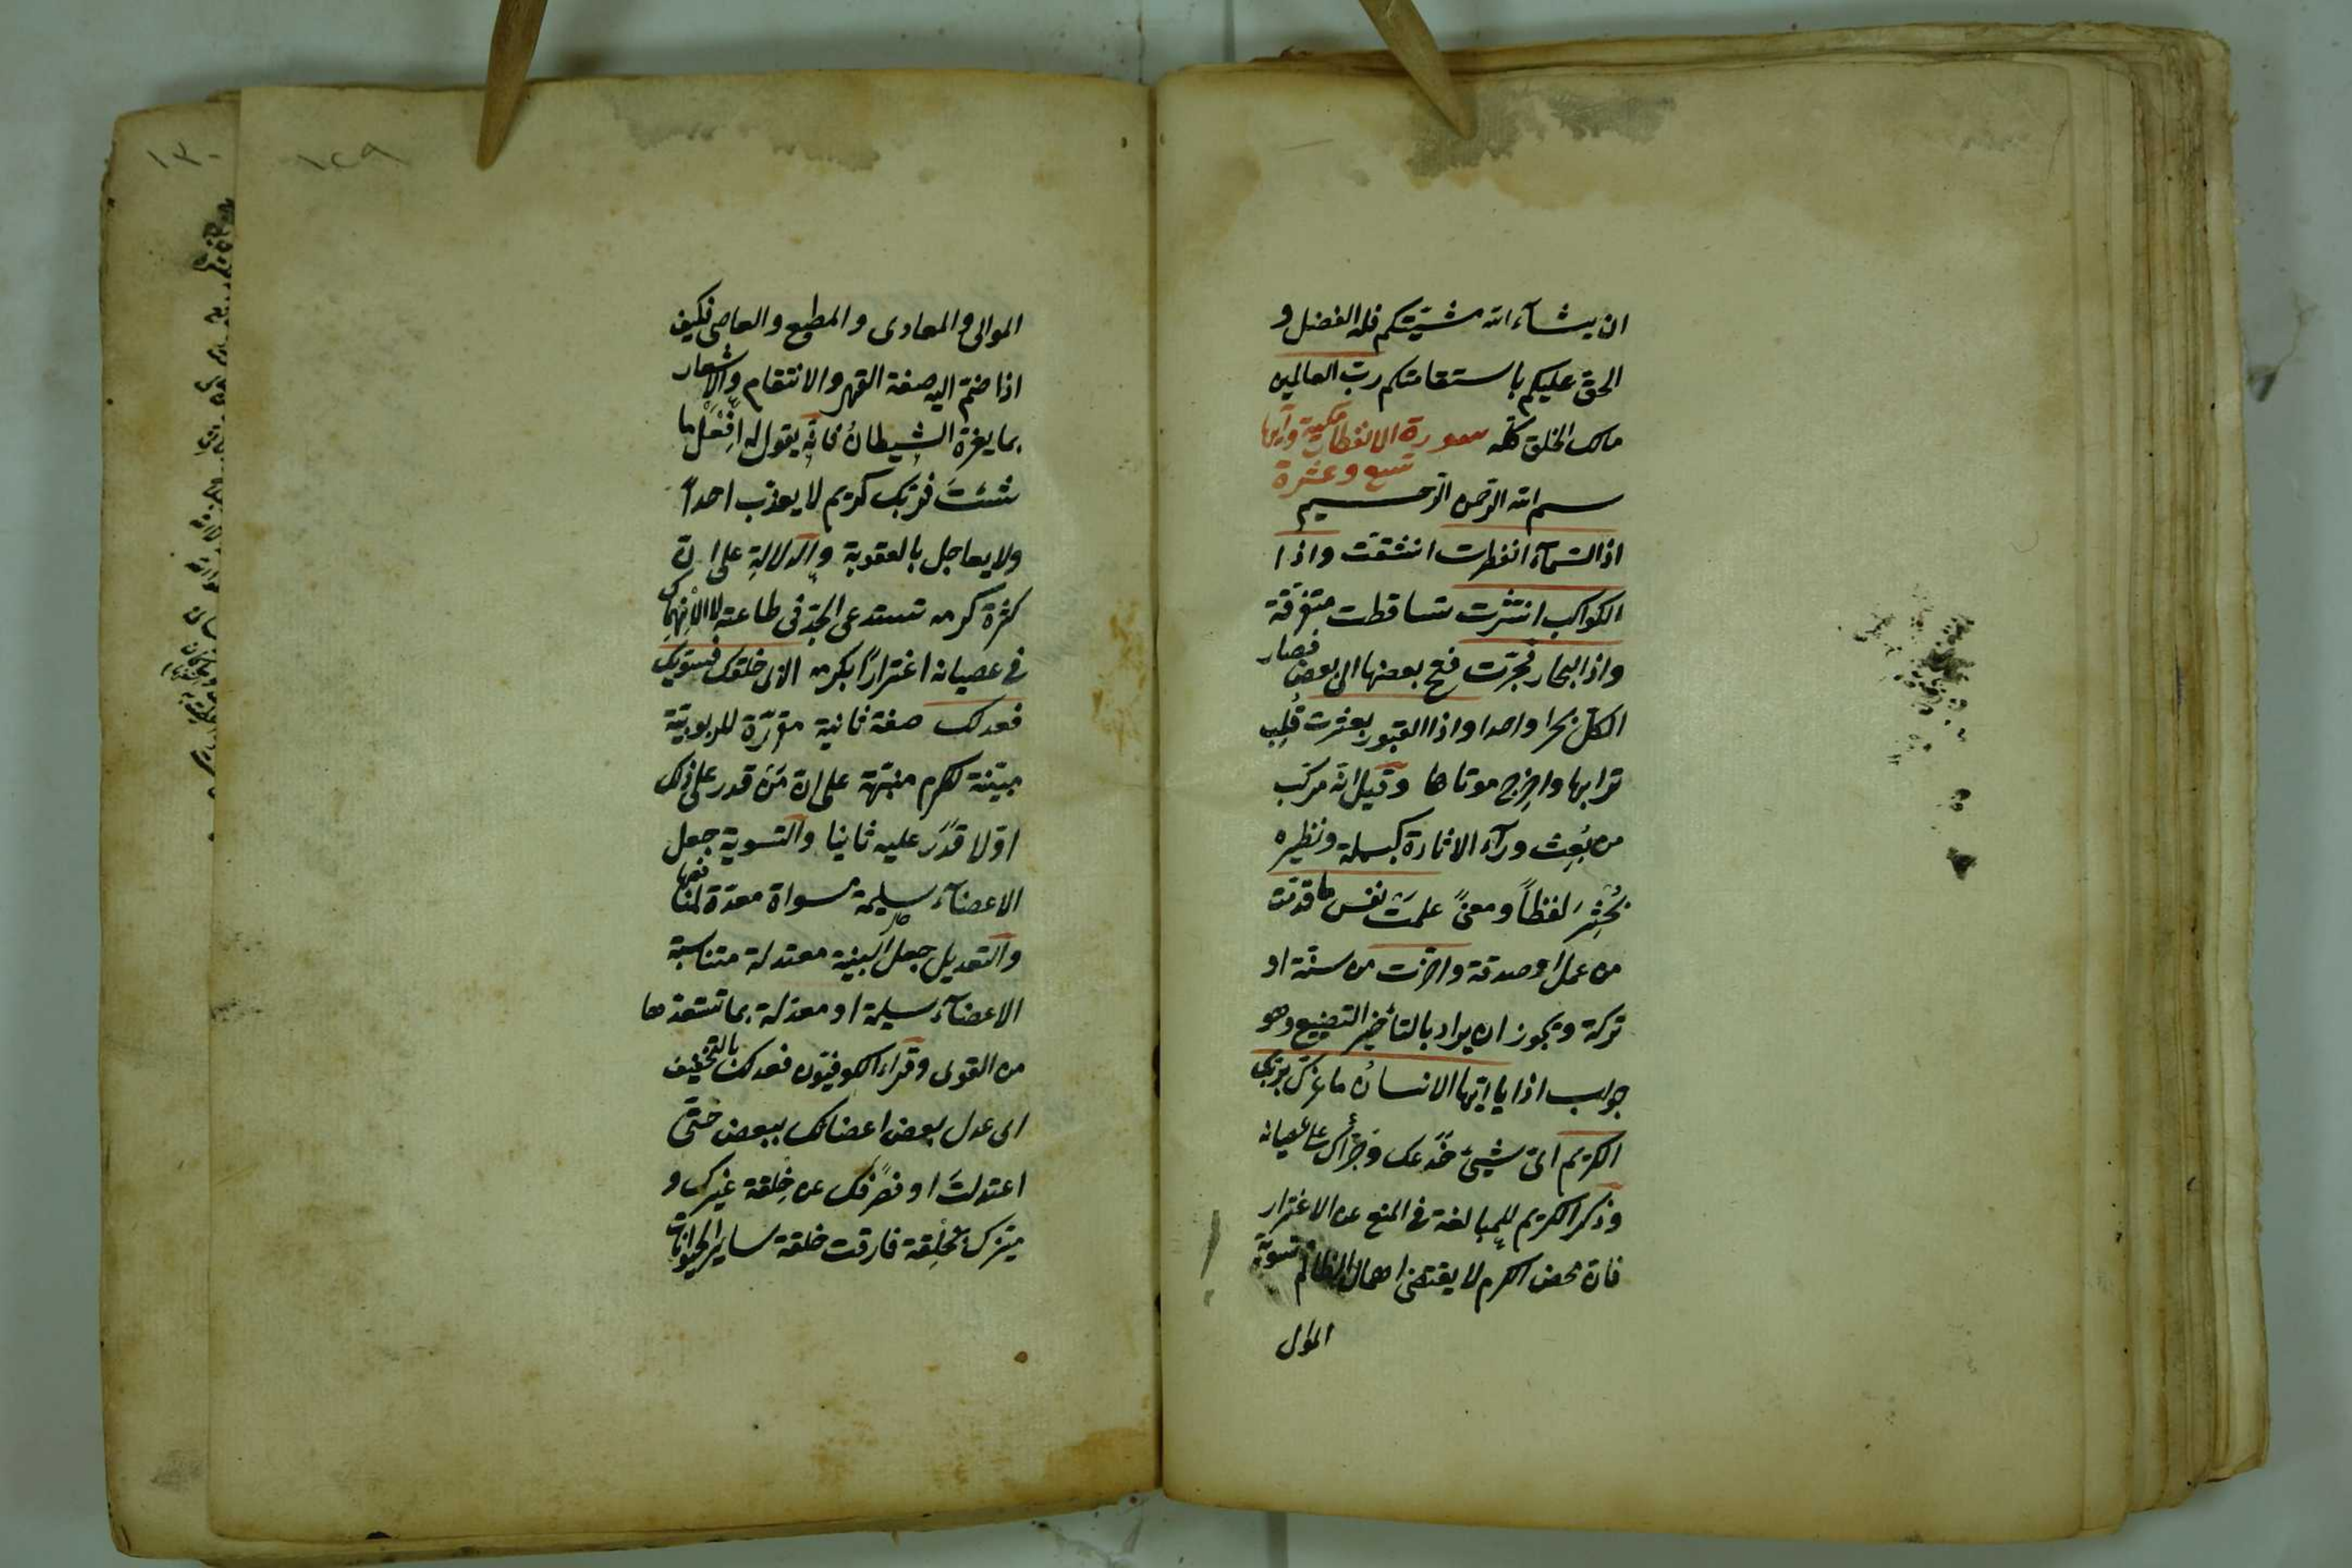 ان يشآء الله مشيّتكم فله الفضل و
الحق عليكم باستقامتكم ربّ العالمين
مالك الخلق كلّه سورة الانفطار مكية وآيها
تسع وعشرة
بسم الله الرّحمن الرّحيم
اذا السّمآء انفطرت انشقت واذا
الكواكب انتثرت تساقطت متفرّقة
واذا البحار فجّرت فتح بعضها الى بعض فصار
الكلّ بحرا واحدا واذا القبور بعثرت قُلِب
ترابها واخرِج موتاها وقيل انّه مركّب
من بُعِث ورآء الاثارة كبسملة ونظيره
بُحْثِرَ لفظاً ومعنىً علمَتْ نفس ما قدمت
من عمل او صدقة واخرت من سنّة او
تركة ويجوز ان يراد بالتأخير التضييع وهو
جواب اذا يا ايّها الانسانُ ما غرّك بربّك
الكريم اىّ شيئ خَدَعك وجَرّأك على عصيانه
وذكر الكريم للمبالغة فى المنع عن الاغترار
فانّ محض الكرم لا يقتضى اهمال الظالم وتسوية
الموالى
١٢٩
الموالى والمعادى والمطيع والعاصى فكيف
اذا ضمّ اليه صفة القهر والانتقام والاشعار
بما يغرّه الشيطانُ فانّه يقول له افْعَلْ ما
شئتَ فربّك كريم لا يعذّب احداً
ولا يعاجل بالعقوبة والدلالة على انّ
كثرة كرمه تستدعى الجدّ فى طاعته لا الانهماك
فى عصيانه اغتراراً بكرمه الذى خلقك فسوّيك
فعدلك صفة ثانية مقرّرة للربوبيّة
مبيّنة للكرم منبّهة على انّ مَنْ قدر على ذلك
اوّلا قَدَر عليه ثانيا والتسوية جعل
الاعضآء سليمة مسواة معدّة لمنافعها
والتعديل جعل البنية معتدلة متناسبة
الاعضآء سليمة او معدّلة بما تستعدّها
من القوى وقراء الكوفيّون فعدلك بالتخفيف
اى عدل بعض اعضائك ببعض حتّى
اعتدلتَ او فصَرَفك عن خِلقة غيرك و
ميّزك بخِلقة فارقت خلقة ساير الحيوانات
١٣٠